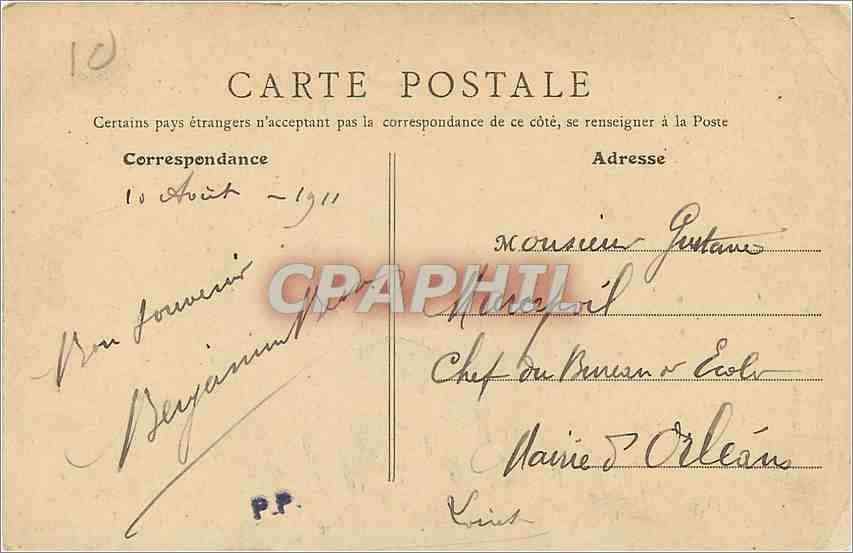 10
CARTE POSTALE
Certains pays étrangers n'acceptant pas la correspondance de ce côté, se renseigner à la Poste
Correspondance
10 Août - 1911
Bon souvenir
Benjamin
P.P.
Adresse
Monsieur Gustave
Chef du Bureau
Mairie d'Orléans
Loiret
CPAPHIL